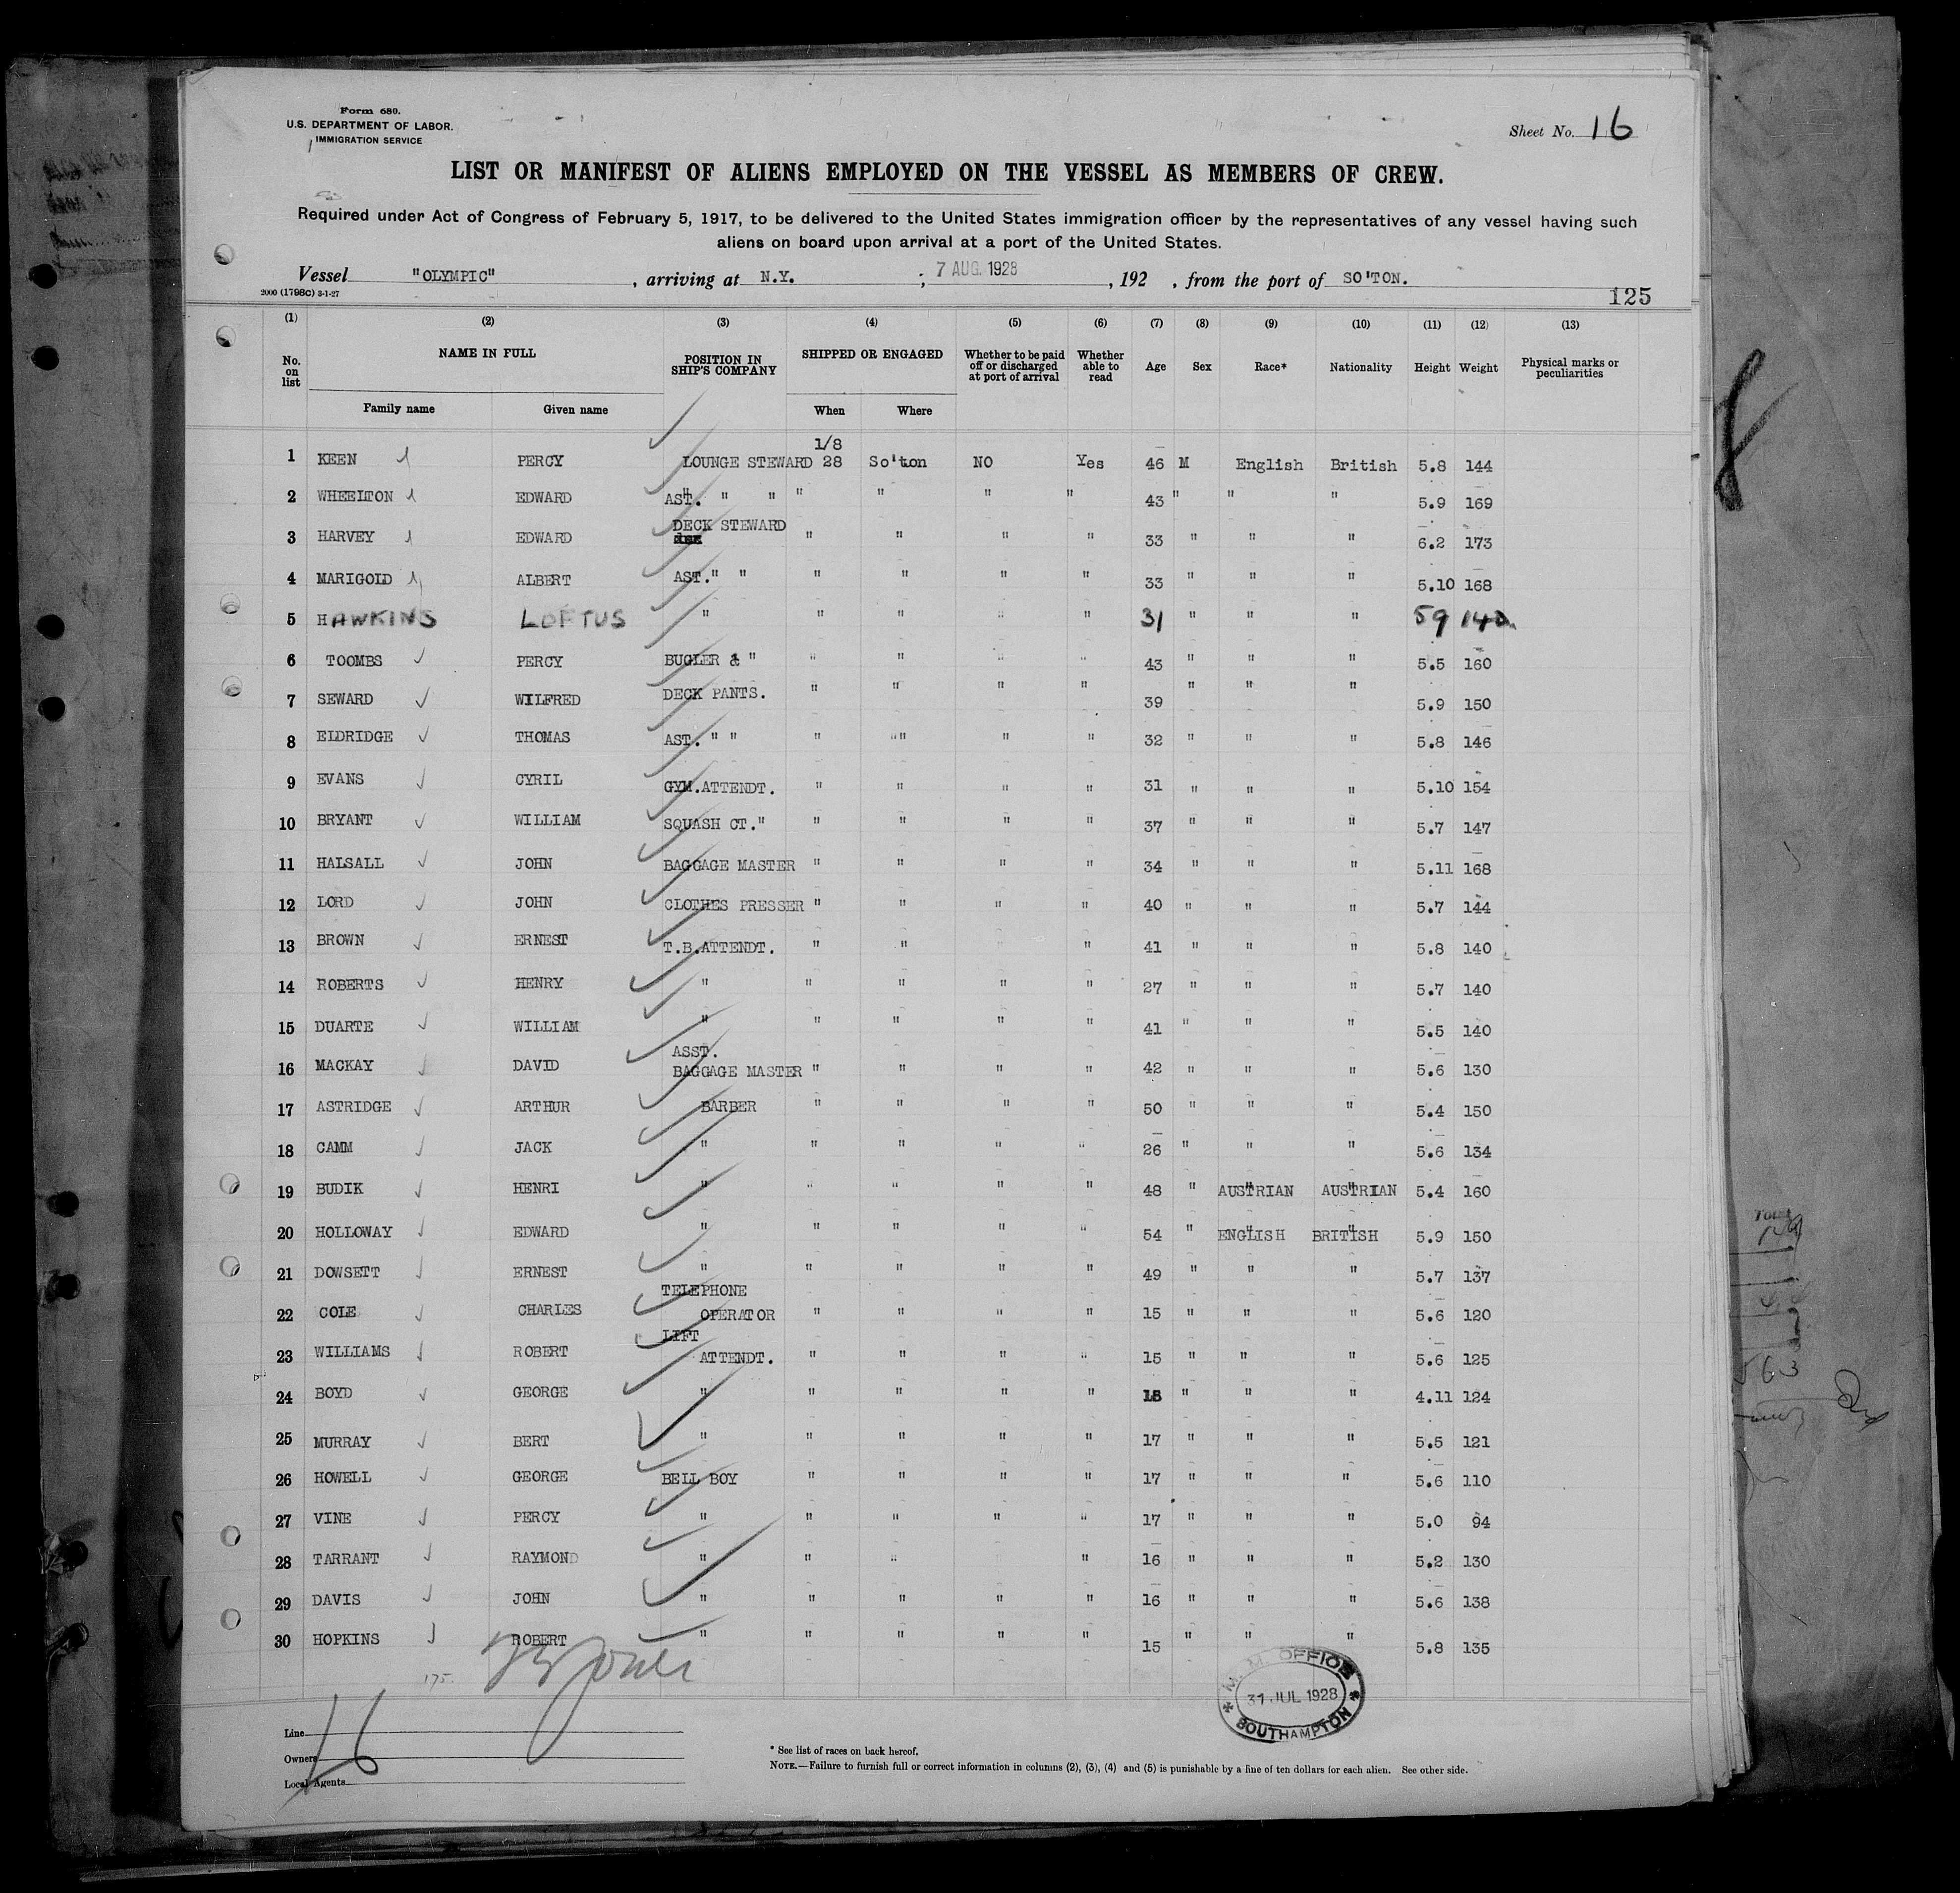 Form 680.
U.S. DEPARTMENT OF LABOR.
IMMIGRATION SERVICE
Sheet No. 16
LIST OR MANIFEST OF ALIENS EMPLOYED ON THE VESSEL AS MEMBERS OF CREW.
Required under Act of Congress of February 5, 1917, to be delivered to the United States immigration officer by the representatives of any vessel having such
aliens on board upon arrival at a port of the United States.
Vessel "OLYMPIC", arriving at N.Y. ; 7 AUG. 1928, 192 , from the port of SO'TON.
2000 (1798C) 3-1-27
125
(1) (2) (3) (4) (5) (6) (7) (8) (9) (10) (11) (12) (13)
No. on list NAME IN FULL POSITION IN SHIP'S COMPANY SHIPPED OR ENGAGED Whether to be paid off or discharged at port of arrival Whether able to read Age Sex Race* Nationality Height Weight Physical marks or peculiarities
Family name Given name When Where
1 KEEN PERCY LOUNGE STEWARD 1/8 28 So'ton NO Yes 46 M English British 5.8 144
2 WHEELTON EDWARD AST. " " " " " " " 43 " " " 5.9 169
3 HARVEY EDWARD DECK STEWARD " " " " 33 " " " 6.2 173
4 MARIGOLD ALBERT AST. " " " " " " 33 " " " 5.10 168
5 HAWKINS LOFTUS " " " " " 31 " " " 59 140
6 TOOMBS PERCY BUGLER & " " " " " 43 " " " 5.5 160
7 SEWARD WILFRED DECK PANTS. " " " " 39 " " " 5.9 150
8 ELDRIDGE THOMAS AST. " " " "" " " 32 " " " 5.8 146
9 EVANS CYRIL GYM.ATTENDT. " " " " 31 " " " 5.10 154
10 BRYANT WILLIAM SQUASH CT." " " " " 37 " " " 5.7 147
11 HALSALL JOHN BAGGAGE MASTER " " " " 34 " " " 5.11 168
12 LORD JOHN CLOTHES PRESSER " " " " 40 " " " 5.7 144
13 BROWN ERNEST T.B.ATTENDT. " " " 41 " " " 5.8 140
14 ROBERTS HENRY " " " " " 27 " " " 5.7 140
15 DUARTE WILLIAM " " " " " 41 " " " 5.5 140
16 MACKAY DAVID ASST. BAGGAGE MASTER " " " " 42 " " " 5.6 130
17 ASTRIDGE ARTHUR BARBER " " " " 50 " " " 5.4 150
18 CAMM JACK " " " " " 26 " " " 5.6 134
19 BUDIK HENRI " " " " " 48 " AUSTRIAN AUSTRIAN 5.4 160
20 HOLLOWAY EDWARD " " " " " 54 " ENGLISH BRITISH 5.9 150
21 DOWSETT ERNEST " " " " " 49 " " " 5.7 137
22 COLE CHARLES TELEPHONE OPERATOR " " " " 15 " " " 5.6 120
23 WILLIAMS ROBERT LIFT ATTENDT. " " " " 15 " " " 5.6 125
24 BOYD GEORGE " " " " " " " " 4.11 124
25 MURRAY BERT " " " " " 17 " " " 5.5 121
26 HOWELL GEORGE BELL BOY " " " " 17 " " " 5.6 110
27 VINE PERCY " " " " " 17 " " " 5.0 94
28 TARRANT RAYMOND " " " " " 16 " " " 5.2 130
29 DAVIS JOHN " " " " " 16 " " " 5.6 138
30 HOPKINS ROBERT " " " " " 15 " " " 5.8 135
175.
Line
Owners
Local Agents
16
M. M. OFFICE
31 JUL 1928
SOUTHAMPTON
* See list of races on back hereof.
NOTE.—Failure to furnish full or correct information in columns (2), (3), (4) and (5) is punishable by a fine of ten dollars for each alien. See other side.
8
Total
563